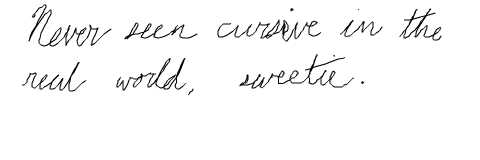 Never seen cursive in the
real world, sweetie.